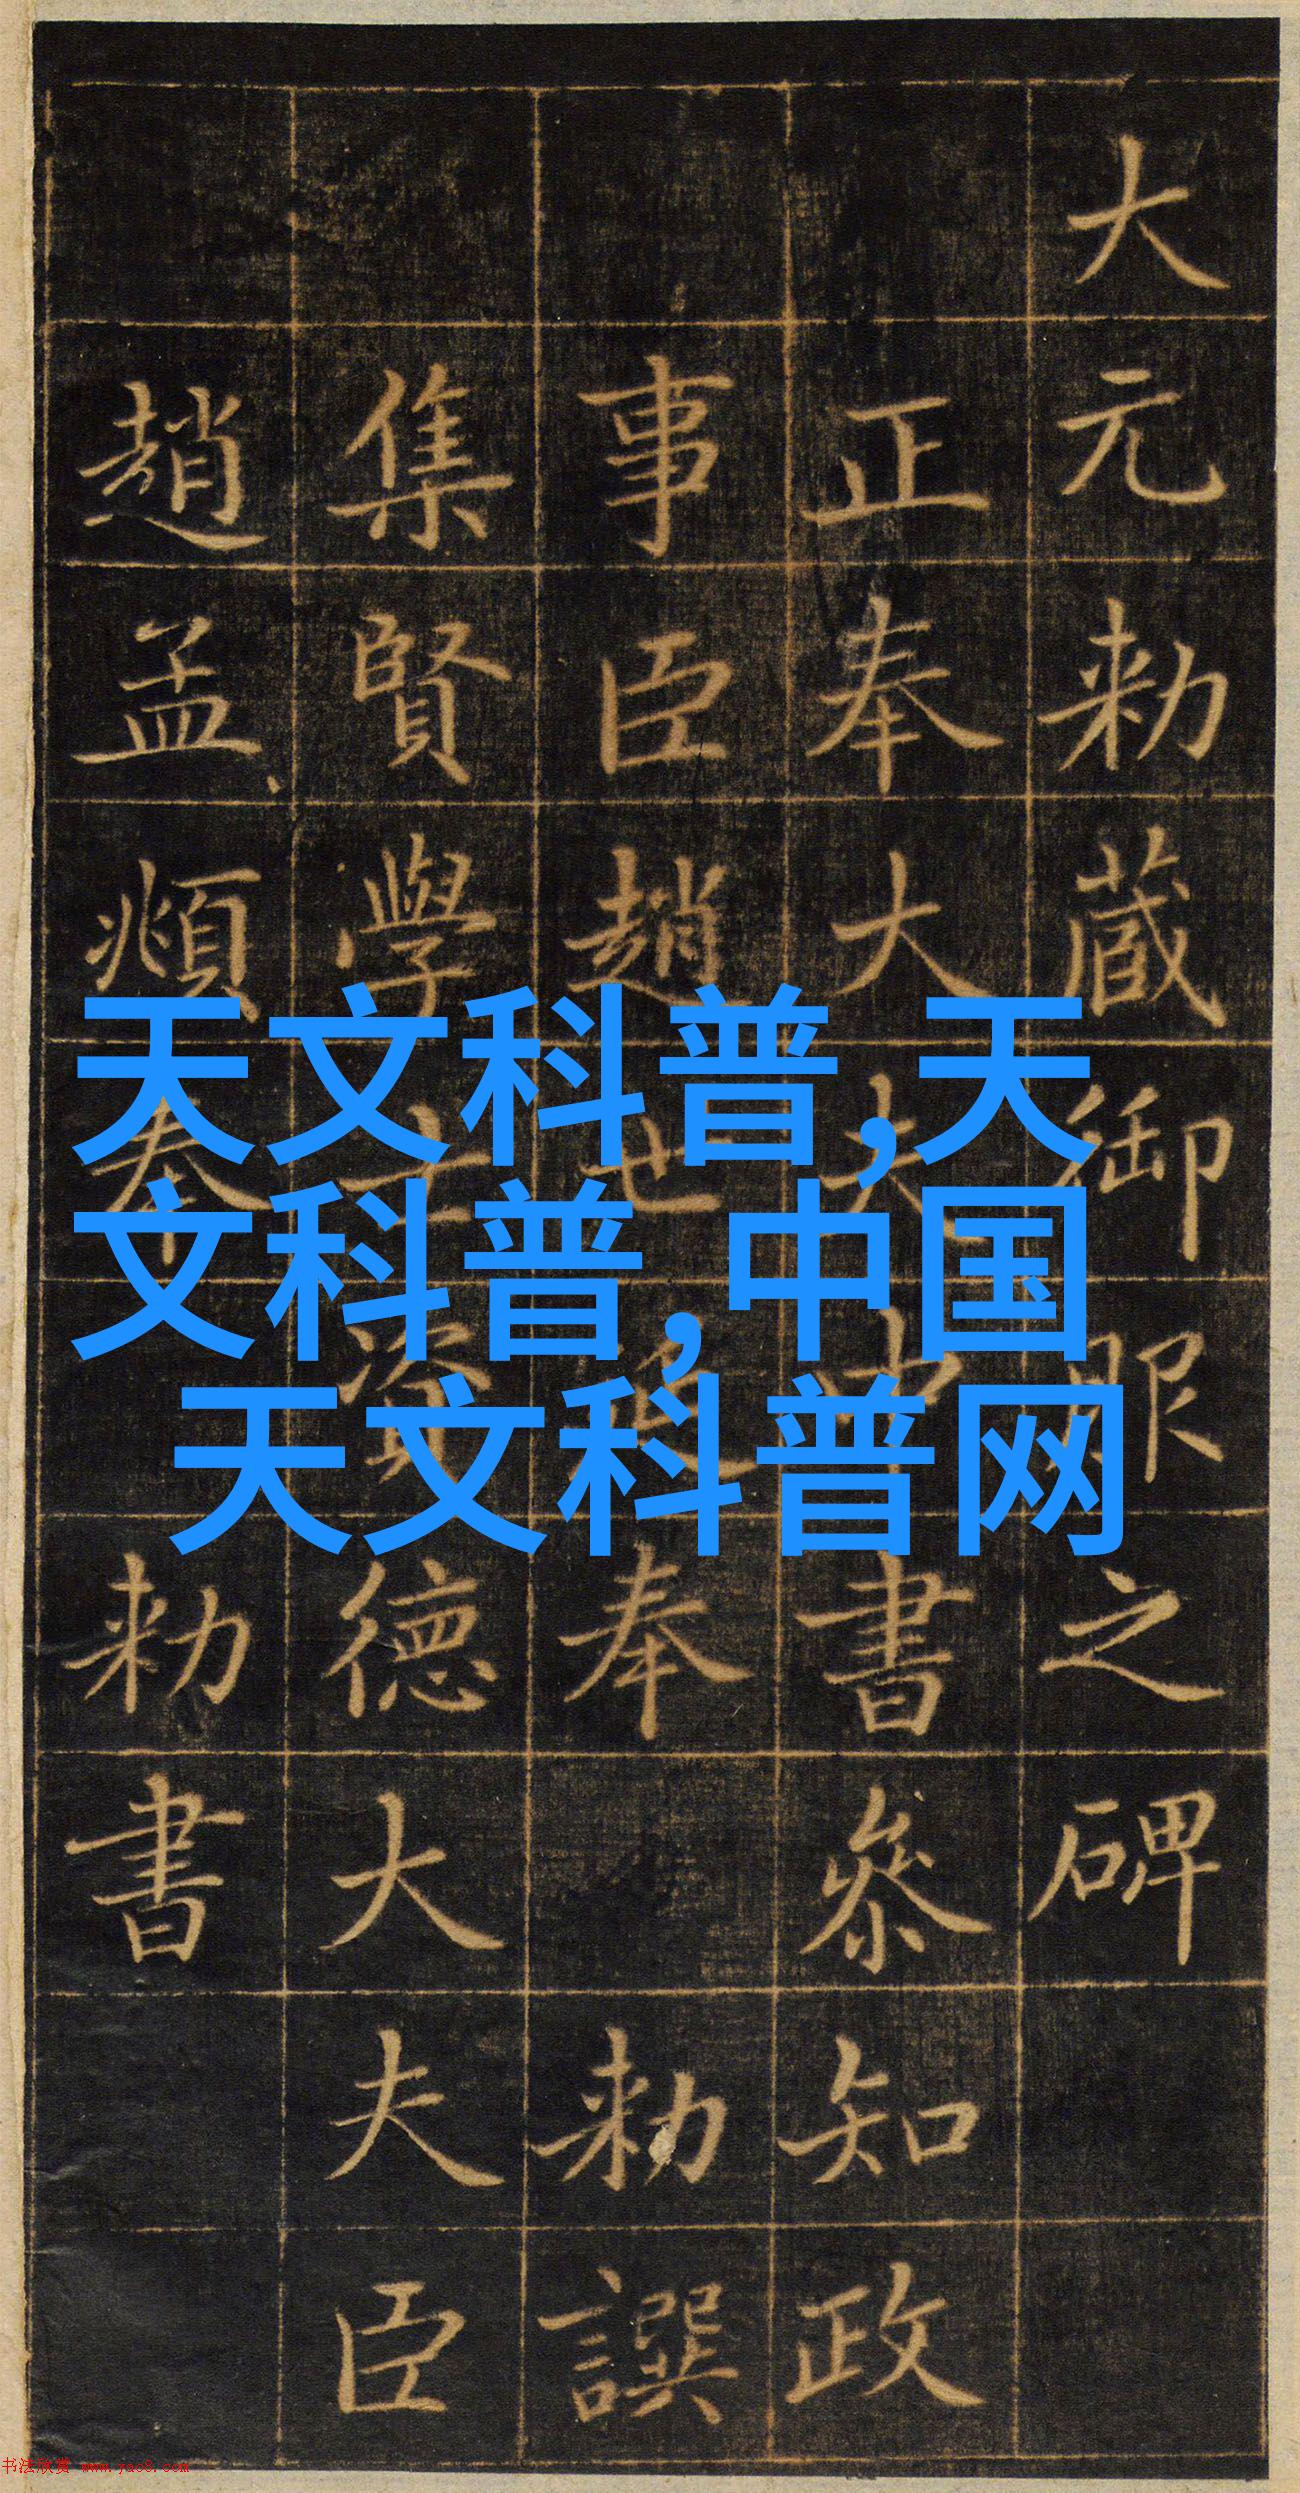 大元勅藏御服之碑
正奉大夫中書叅知政
事臣趙世延奉勅譔
集賢學士資德大夫臣
趙孟頫奉勅書
天文科普,天
文科普,中国
天文科普网
书法欣赏 www.yac8.com